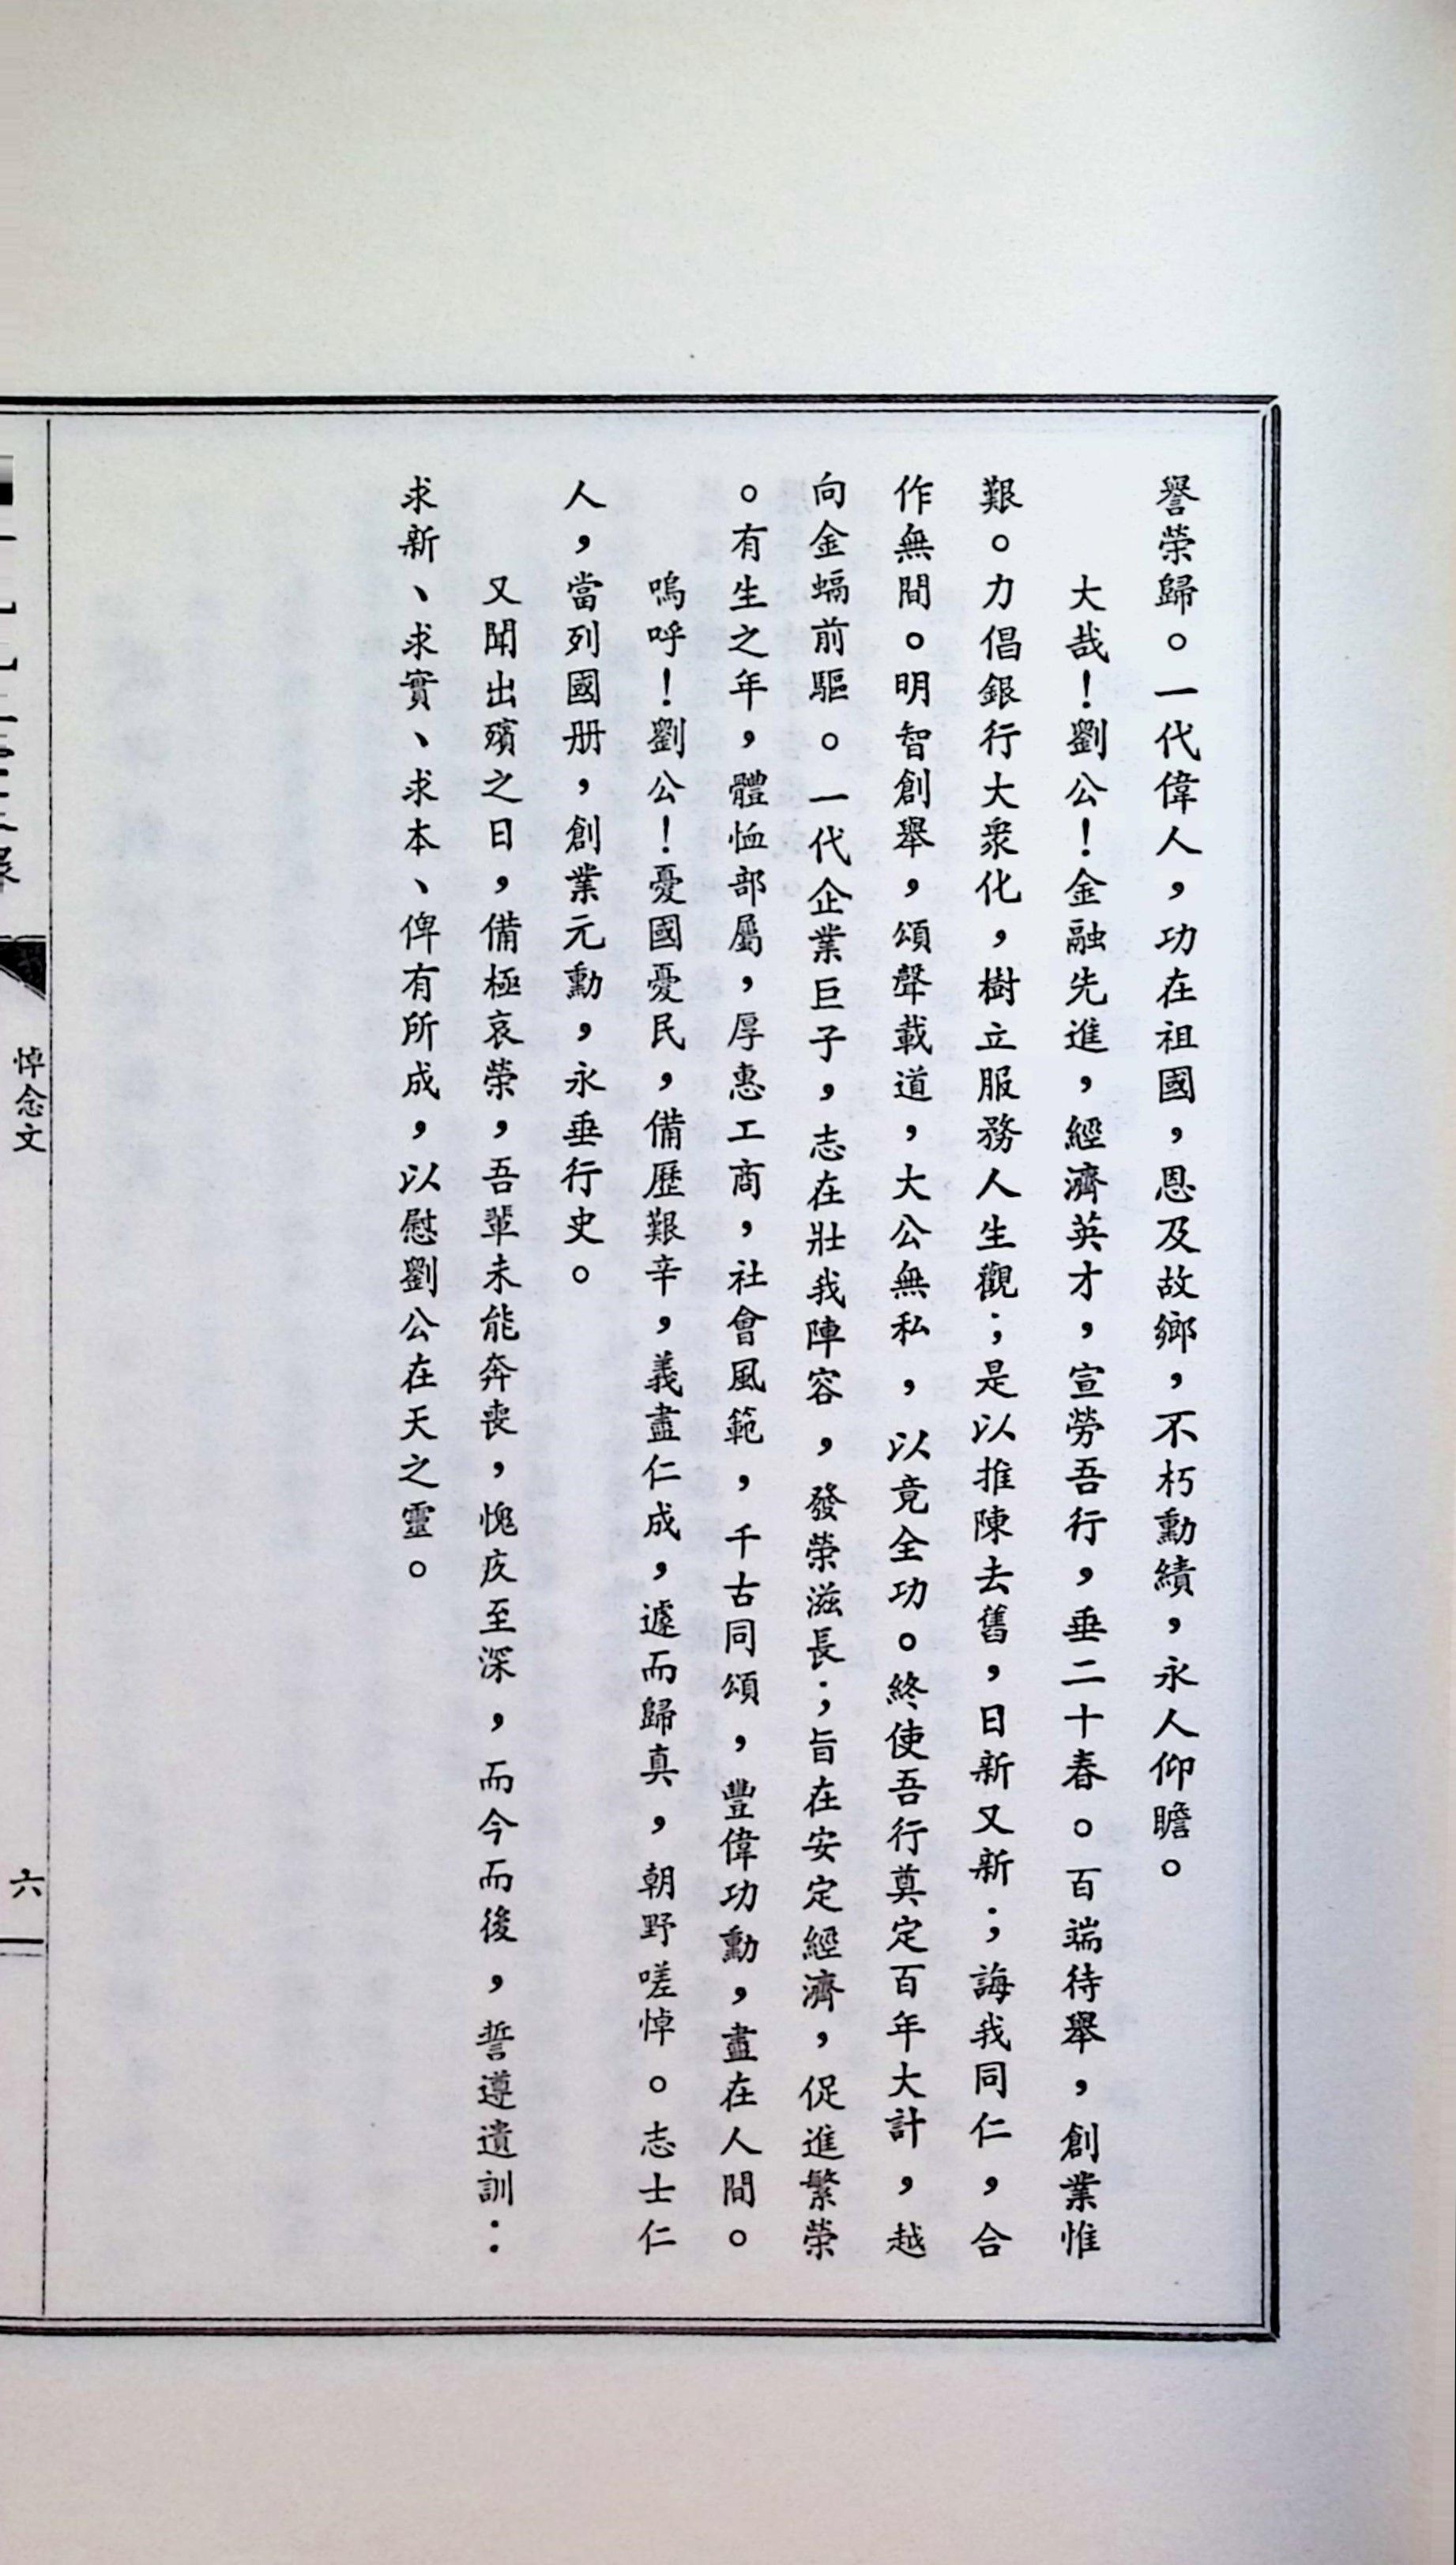 譽榮歸。一代偉人，功在祖國，恩及故鄉，不朽勳績，永人仰瞻。
大哉！劉公！金融先進，經濟英才，宣勞吾行，垂二十春。百端待舉，創業惟
艱。力倡銀行大衆化，樹立服務人生觀；是以推陳去舊，日新又新；誨我同仁，合
作無間。明智創舉，頌聲載道，大公無私，以竟全功。終使吾行奠定百年大計，越
向金蝠前驅。一代企業巨子，志在壯我陣容，發榮滋長；旨在安定經濟，促進繁榮
。有生之年，體恤部屬，厚惠工商，社會風範，千古同頌，豐偉功勳，盡在人間。
嗚呼！劉公！憂國憂民，備歷艱辛，義盡仁成，遽而歸真，朝野嗟悼。志士仁
人，當列國册，創業元勳，永垂行史。
又聞出殯之日，備極哀榮，吾輩未能奔喪，愧疚至深，而今而後，誓遵遺訓：
求新、求實、求本、俾有所成，以慰劉公在天之靈。
悼念文
六